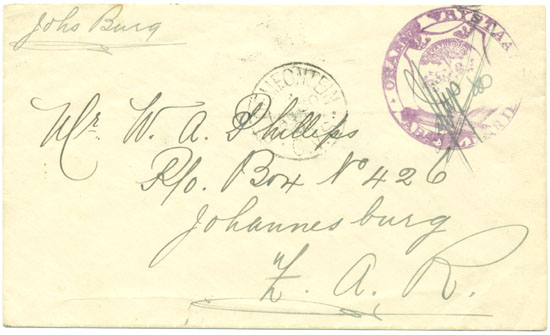 Johs Burg
ORANJE VRYSTAA
Mr. W. A. Phillips
P/o. Box No 426
Johannesburg
Z. A. R.